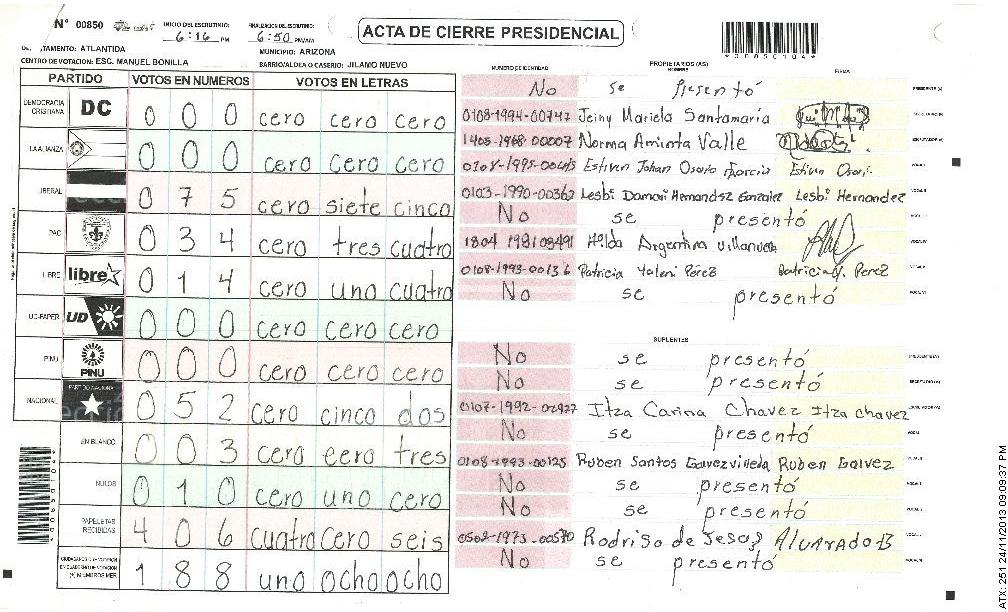 N° 00850
INICIO DEL ESCRUTINIO: 6:16 PM
FINALIZACION DEL ESCRUTINIO: 6:50 PM/AM
ACTA DE CIERRE PRESIDENCIAL
*00850104*
TAMENTO: ATLANTIDA
MUNICIPIO: ARIZONA
CENTRO DE VOTACION: ESC. MANUEL BONILLA
BARRIO/ALDEA O CASERIO: JILAMO NUEVO
PARTIDO VOTOS EN NUMEROS VOTOS EN LETRAS
DEMOCRACIA CRISTIANA DC 0 0 0 cero cero cero
LA ALIANZA 0 0 0 cero cero cero
LIBERAL 0 7 5 cero siete cinco
PAC 0 3 4 cero tres cuatro
LIBRE libre 0 1 4 cero uno cuatro
UD-FAPER UD 0 0 0 cero cero cero
PINU PINU 0 0 0 cero cero cero
NACIONAL PARTIDO NACIONAL 0 5 2 cero cinco dos
EN BLANCO 0 0 3 cero eero tres
NULOS 0 1 0 cero uno cero
PAPELETAS RECIBIDAS 4 0 6 cuatro cero seis
1 8 8 uno ocho ocho
NUMERO DE IDENTIDAD PROPIETARIOS (AS) NOMBRE FIRMA
No se presentó PRESIDENTE (A)
0108-1994-00747 Jeiny Mariela Santamaria SECRETARIO (A)
1405-1968-00007 Norma Aminta Valle ESCRUTADOR (A)
Estiven Johan Osorio VOCAL I
0103-1990-00362 Lesbi Damari Hernandez Gonzalez Lesbi Hernandez VOCAL II
No se presentó
1804 1981 03491 Hilda Argentina Villanueva VOCAL IV
0108-1993-00136 Patricia Yaleni Pérez Patricia Y. Perez
No se presentó
SUPLENTES
No se presentó PRESIDENTE (A)
No se presentó SECRETARIO (A)
0107-1992-02927 Itza Carina Chavez Itza chavez
No se presentó
0108-1993-00125 Ruben Santos Ruben Galvez
No se presentó
No se presentó
0502-1973-00570 Rodrigo de Jesus Alvarado B
No se presentó
*00850104*
ATX: 251 24/11/2013 09:09:37 PM